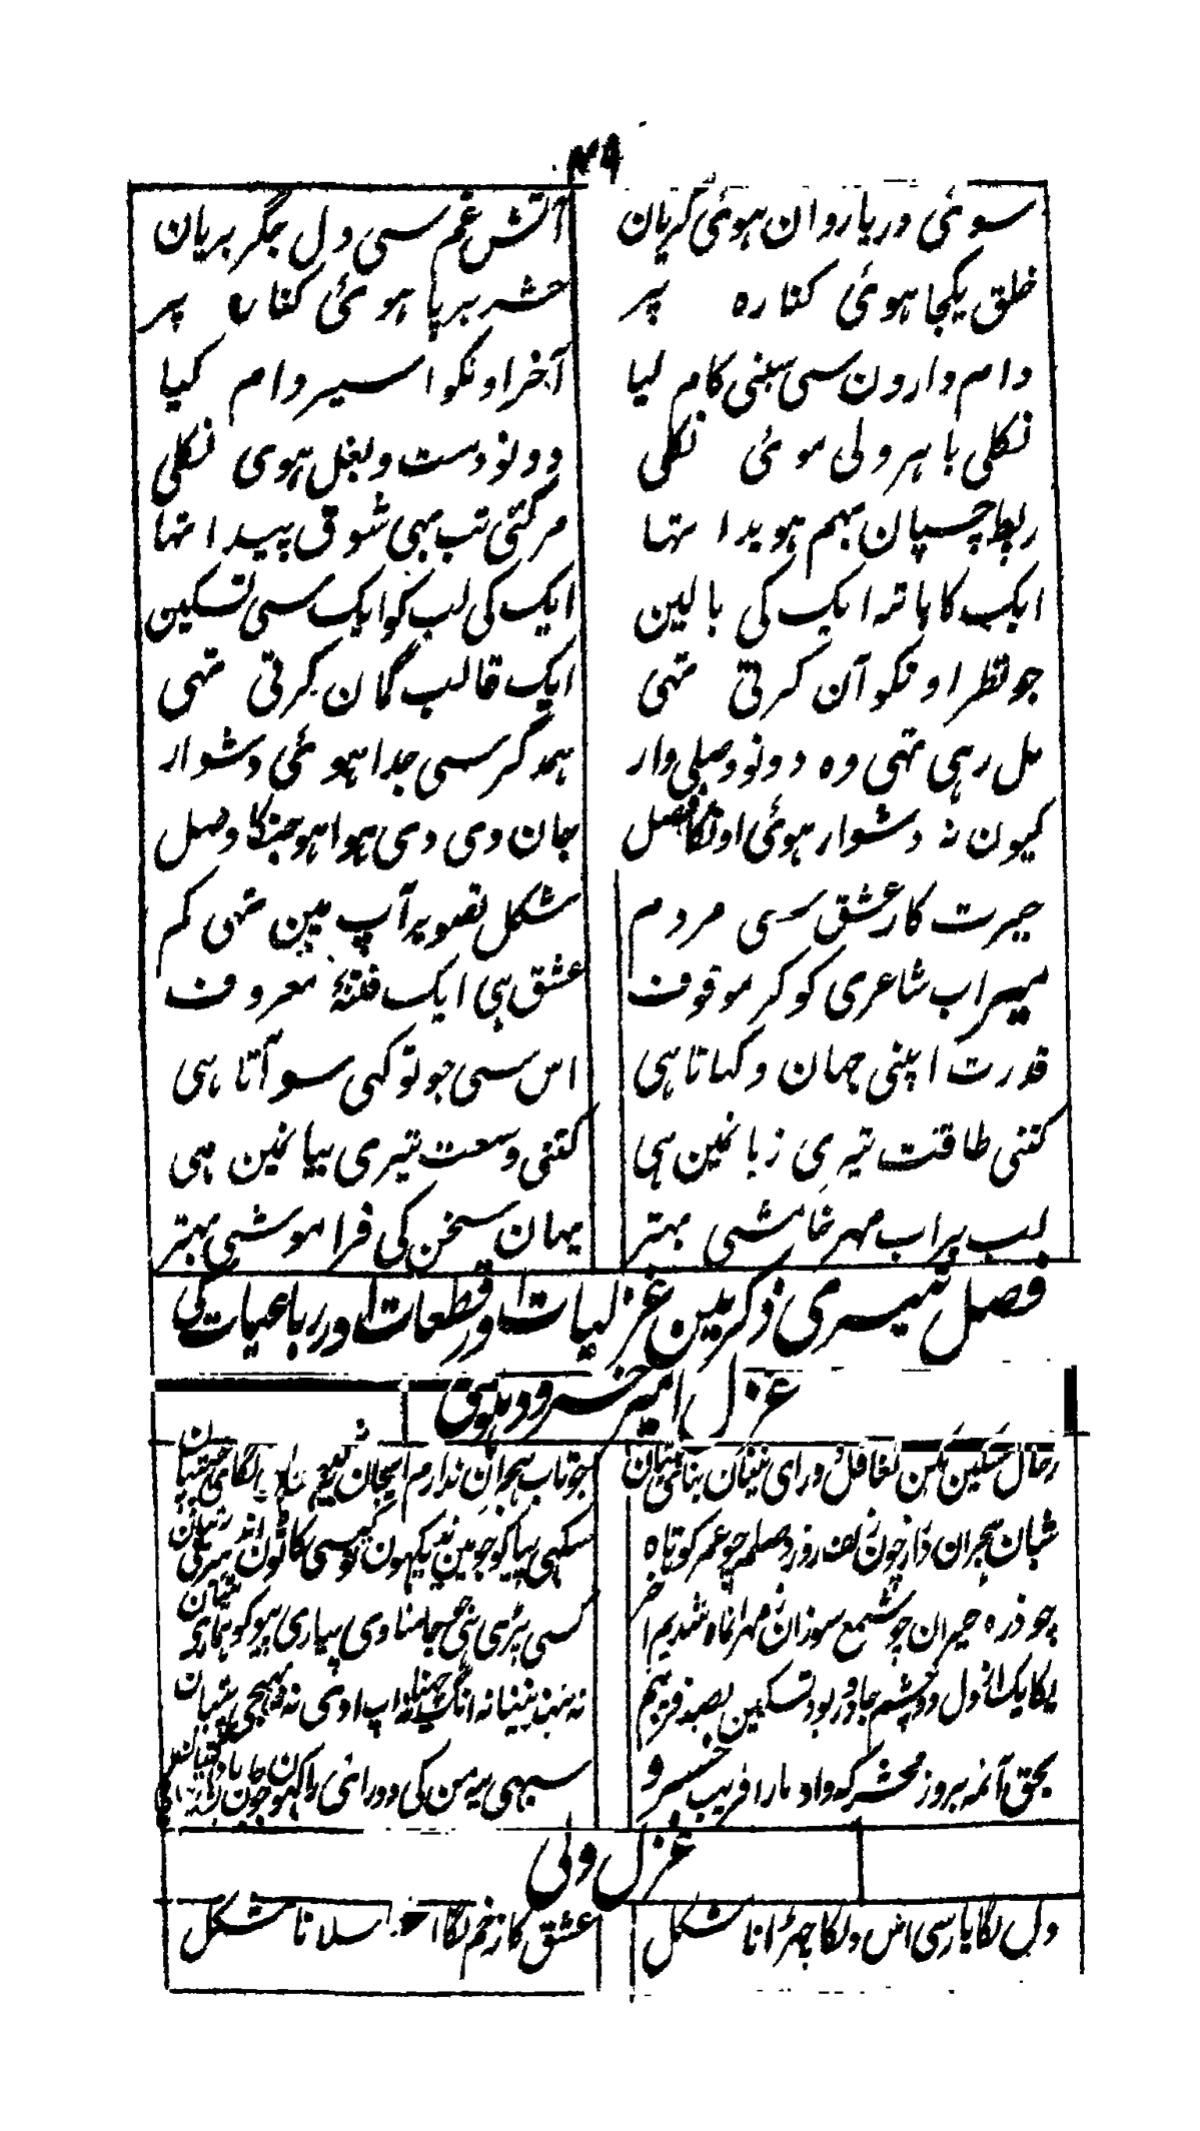 ۴۹
سوئی دریا روان ہوئی گریان آتش غم سی دل جگر بریان
خلق یکجا ہوئی کنارہ پر حشر برپا ہوئی کنارہ پر
دام دارون سی سبنی کام لیا آخر اونکو اسیر دام کیا
نکلی باہر ولی موئی نکلی دونو دست و بغل ہوی نکلی
ربط چسپان بہم ہویدا تہا مرگئی تب بہی شوق پیدا تہا
ایک کا ہاتہ ایک کی بالین ایک کی لب کو ایک سی تسکین
جو نظر اونکو آن کرتی تہی ایک قالب گمان کرتی تہی
مل رہی تہی وہ دونو وصلی وار ہمدگر سی جدا ہوئی دشوار
کیون نہ دشوار ہوئی اونکا فصل جان دی دی ہوا ہو جنکا وصل
حیرت کار عشق سی مردم شکل تصویر آپ مین تہی کم
میر اب شاعری کو کر موقوف عشق ہی ایک فتنۂ معروف
قدرت اپنی جہان دکہاتا ہی اس سی جو تو کہی سو آتا ہی
کتنی طاقت تیری زبانمین ہی کتنی وسعت تیری بیانمین ہی
لب پر اب مہر خامشی بہتر یہان سخن کی فراموشی بہتر
فصل تیسری ذکر مین غزلیات اور قطعات اور رباعیات کی
غزل امیر خسرو دہلوی
زحال مسکین مکن تغافل ورای نینان بنائی بتیان جو تاب ہجران ندارم ایجان لگای چھتیان
شبان ہجران دراز چون زلف روز وصلم چو عمر کوتاہ سکہی پیا کو جو مین ندیکہون کاٹون اندہیری رتیان
چو ذرہ حیران چو شمع سوزان ز مہر انماہ شدیم اخر کسی پڑی ہی جو جا سناوی پیاری پیو کو ہماری بتیان
یکایک از دل دو چشم جادو بود تسکین بصد فریبم نہ نیند نینا نہ انگ چینا نہ آپ اوی نہ بہیجی پتیان
بحق آنمہ بروز محشر کہ داد مارا فریب خسرو سبہی من کی دورائی
غزل ولی
دل لگا یار سی اس دلکا چہڑانا مشکل عشق کا زخم لگا سلانا مشکل